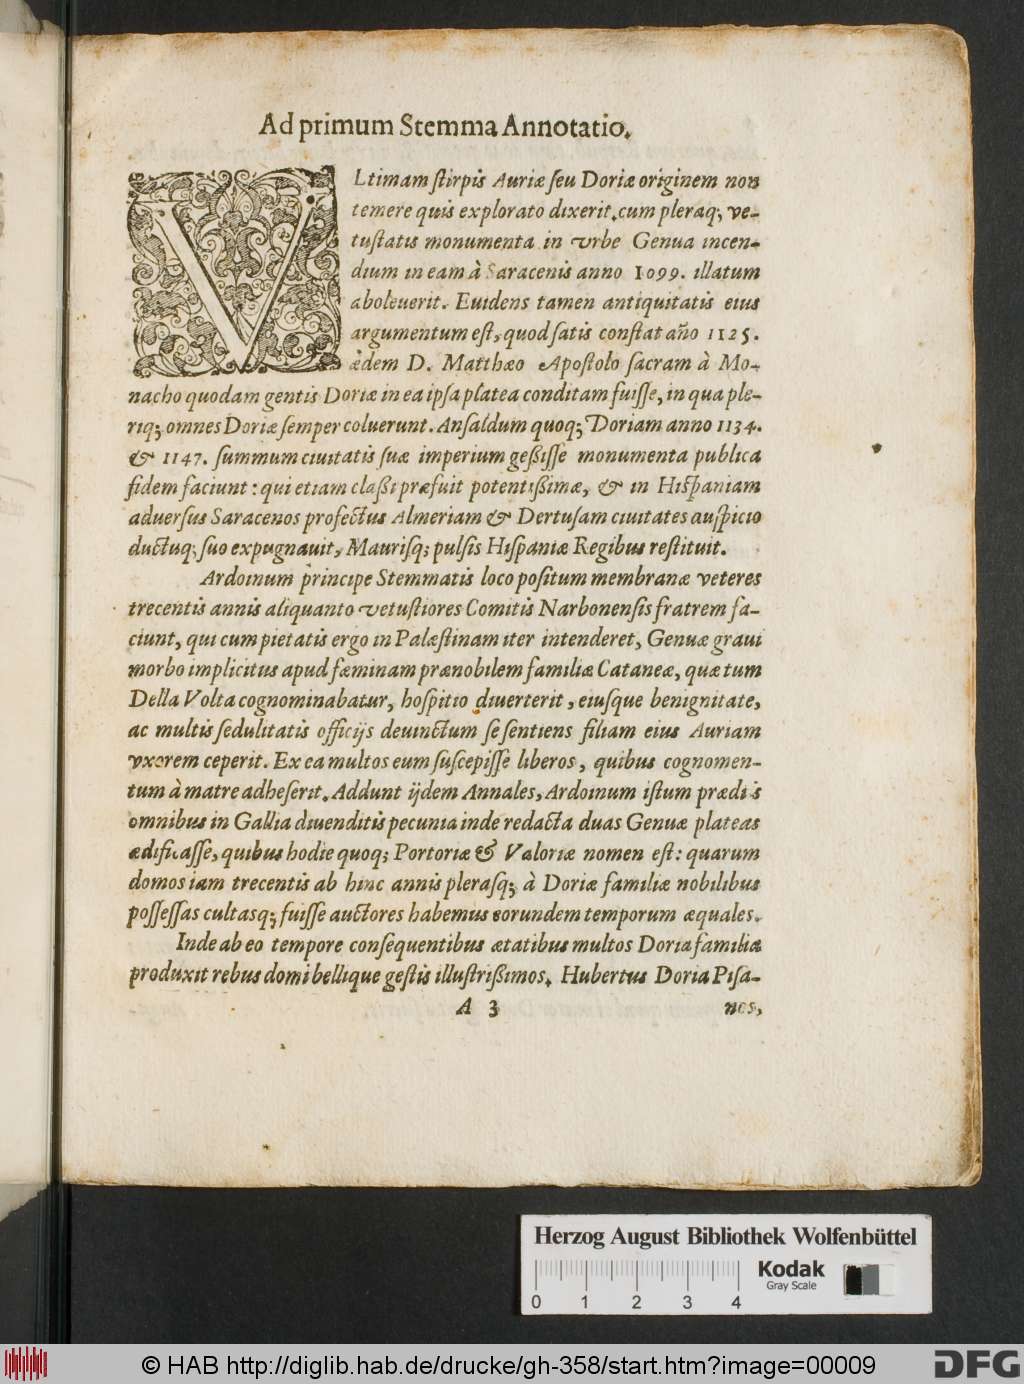 Ad primum Stemma Annotatio.
VLtimam ſtirpis Auriæ ſeu Doriæ originem non
temere quis explorato dixerit, cum pleraq; ve-
tuſtatis monumenta in vrbe Genua incen-
dium in eam à Saracenis anno 1099. illatum
aboleuerit. Euidens tamen antiquitatis eius
argumentum eſt, quod ſatis conſtat año 1125.
ædem D. Matthæo Apoſtolo ſacram à Mo-
nacho quodam gentis Doriæ in ea ipſa platea conditam fuiſſe, in qua ple-
riq; omnes Doriæ ſemper coluerunt. Anſaldum quoq; Doriam anno 1134.
& 1147. ſummum ciuitatis ſuæ imperium geßiſſe monumenta publica
fidem faciunt: qui etiam claßi præfuit potentißimæ, & in Hiſpaniam
aduerſus Saracenos profectus Almeriam & Dertuſam ciuitates auſpicio
ductuq; ſuo expugnauit, Mauriſq; pulſis Hiſpaniæ Regibus reſtituit.
Ardoinum principe Stemmatis loco poſitum membranæ veteres
trecentis annis aliquanto vetuſtiores Comitis Narbonenſis fratrem fa-
ciunt, qui cum pietatis ergo in Palæſtinam iter intenderet, Genuæ graui
morbo implicitus apud fæminam prænobilem familiæ Cataneæ, quæ tum
Della Volta cognominabatur, hoſpitio diuerterit, eiuſque benignitate,
ac multis ſedulitatis officijs deuinctum ſe ſentiens filiam eius Auriam
vxorem ceperit. Ex ea multos eum ſuſcepiſſe liberos, quibus cognomen-
tum à matre adheſerit. Addunt ijdem Annales, Ardoinum iſtum prædiis
omnibus in Gallia diuenditis pecunia inde redacta duas Genuæ plateas
ædificaſſe, quibus hodie quoq; Portoriæ & Valoriæ nomen eſt: quarum
domos iam trecentis ab hinc annis pleraſq; à Doriæ familiæ nobilibus
poſſeſſas cultasq; fuiſſe auctores habemus eorundem temporum æquales.
Inde ab eo tempore conſequentibus ætatibus multos Doria familia
produxit rebus domi bellique geſtis illuſtrißimos. Hubertus Doria Piſa-
A 3 nos,
Herzog August Bibliothek Wolfenbüttel
Kodak
Gray Scale
0 1 2 3 4
© HAB http://diglib.hab.de/drucke/gh-358/start.htm?image=00009
DFG